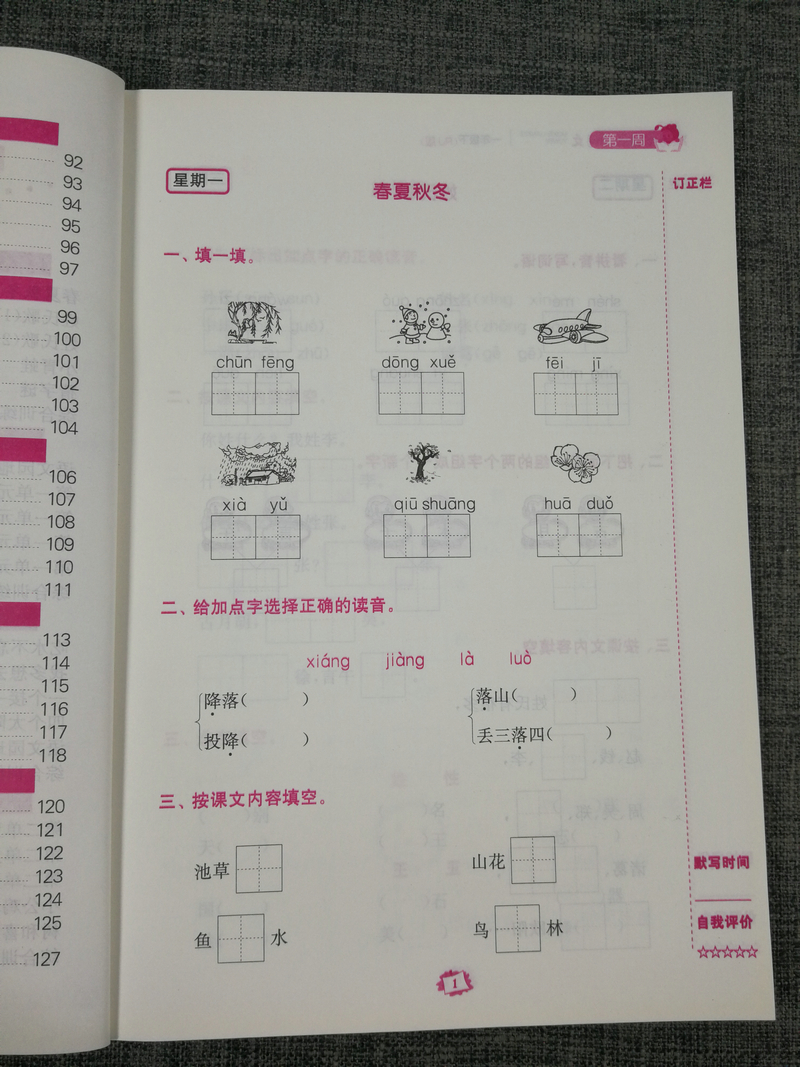 92
93
94
95
96
97
99
100
101
102
103
104
106
107
108
109
110
111
113
114
115
116
117
118
120
121
122
123
124
125
127
第一周
星期一
春夏秋冬
订正栏
一、填一填。
chūn fēng dōng xuě fēi jī
xià yǔ qiū shuāng huā duǒ
二、给加点字选择正确的读音。
xiáng jiàng là luò
降落( ) 落山( )
投降( ) 丢三落四( )
三、按课文内容填空。
池草 山花
鱼 水 鸟 林
默写时间
自我评价
☆☆☆☆☆
1